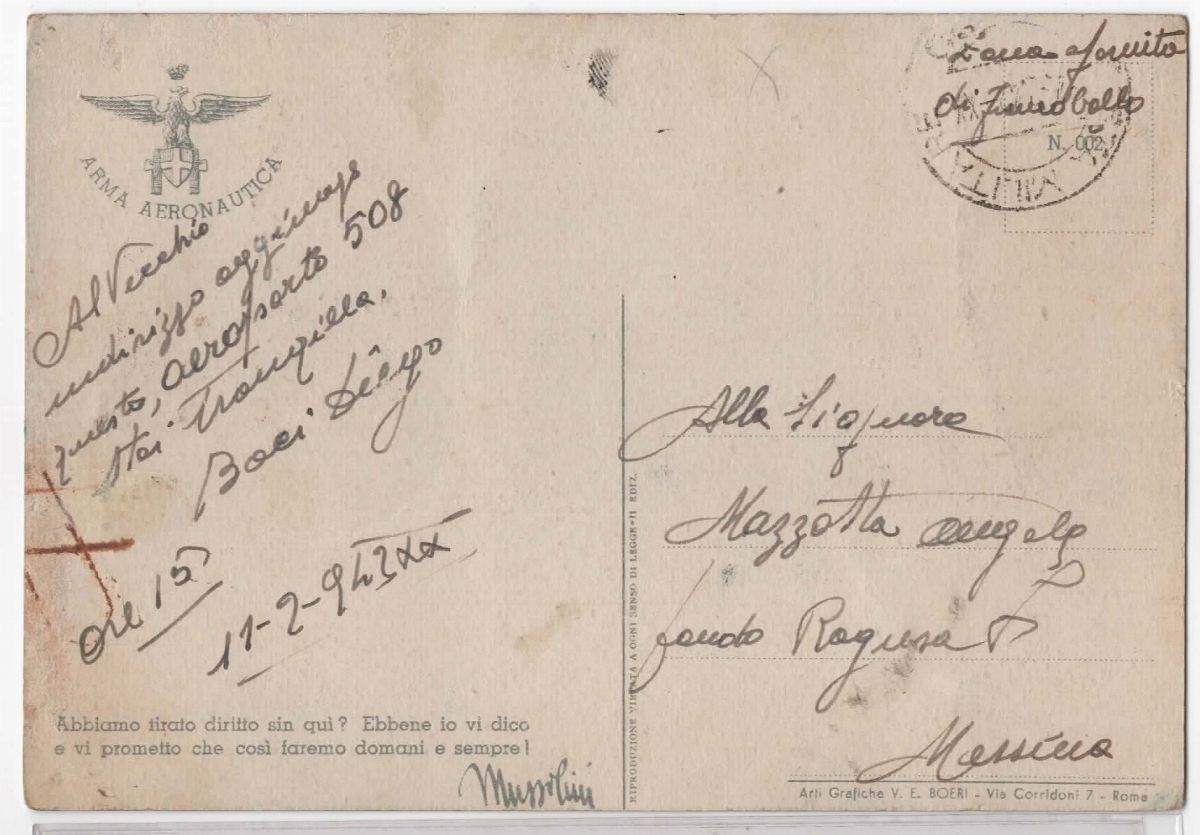 ARMA AERONAUTICA
Al Vecchio
indirizzo aggiungo
questo, aeroporto 508
stai Tranquilla.
Baci Diego
ore 15
11-2-943 XX
Abbiamo tirato diritto sin qui? Ebbene io vi dico
e vi prometto che così faremo domani e sempre!
Mussolini
RIPRODUZIONE VIETATA A OGNI SENSO DI LEGGE-II EDIZ.
Zona sfornita
di francobollo
N. 002
MILITARE
Alla Signora
Mazzotta Angela
fondo Ragusa F
Messina
Arti Grafiche V. E. BOERI - Via Corridoni 7 - Roma